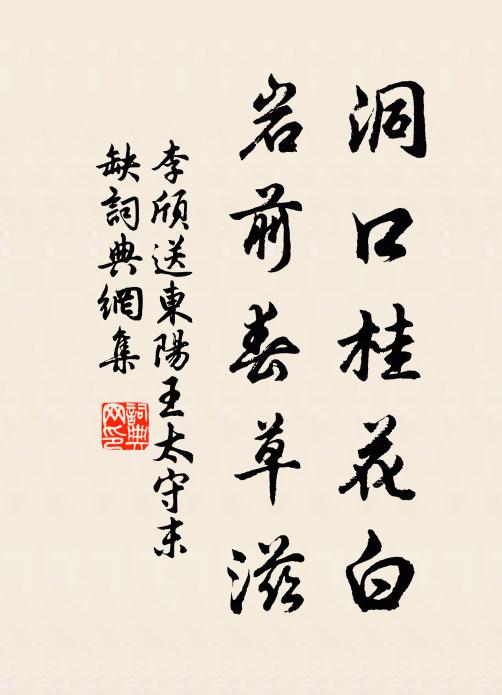 洞口桂花白
岩前春草滋
李頎送東陽王太守末
缺詞典網集
詞典
网印